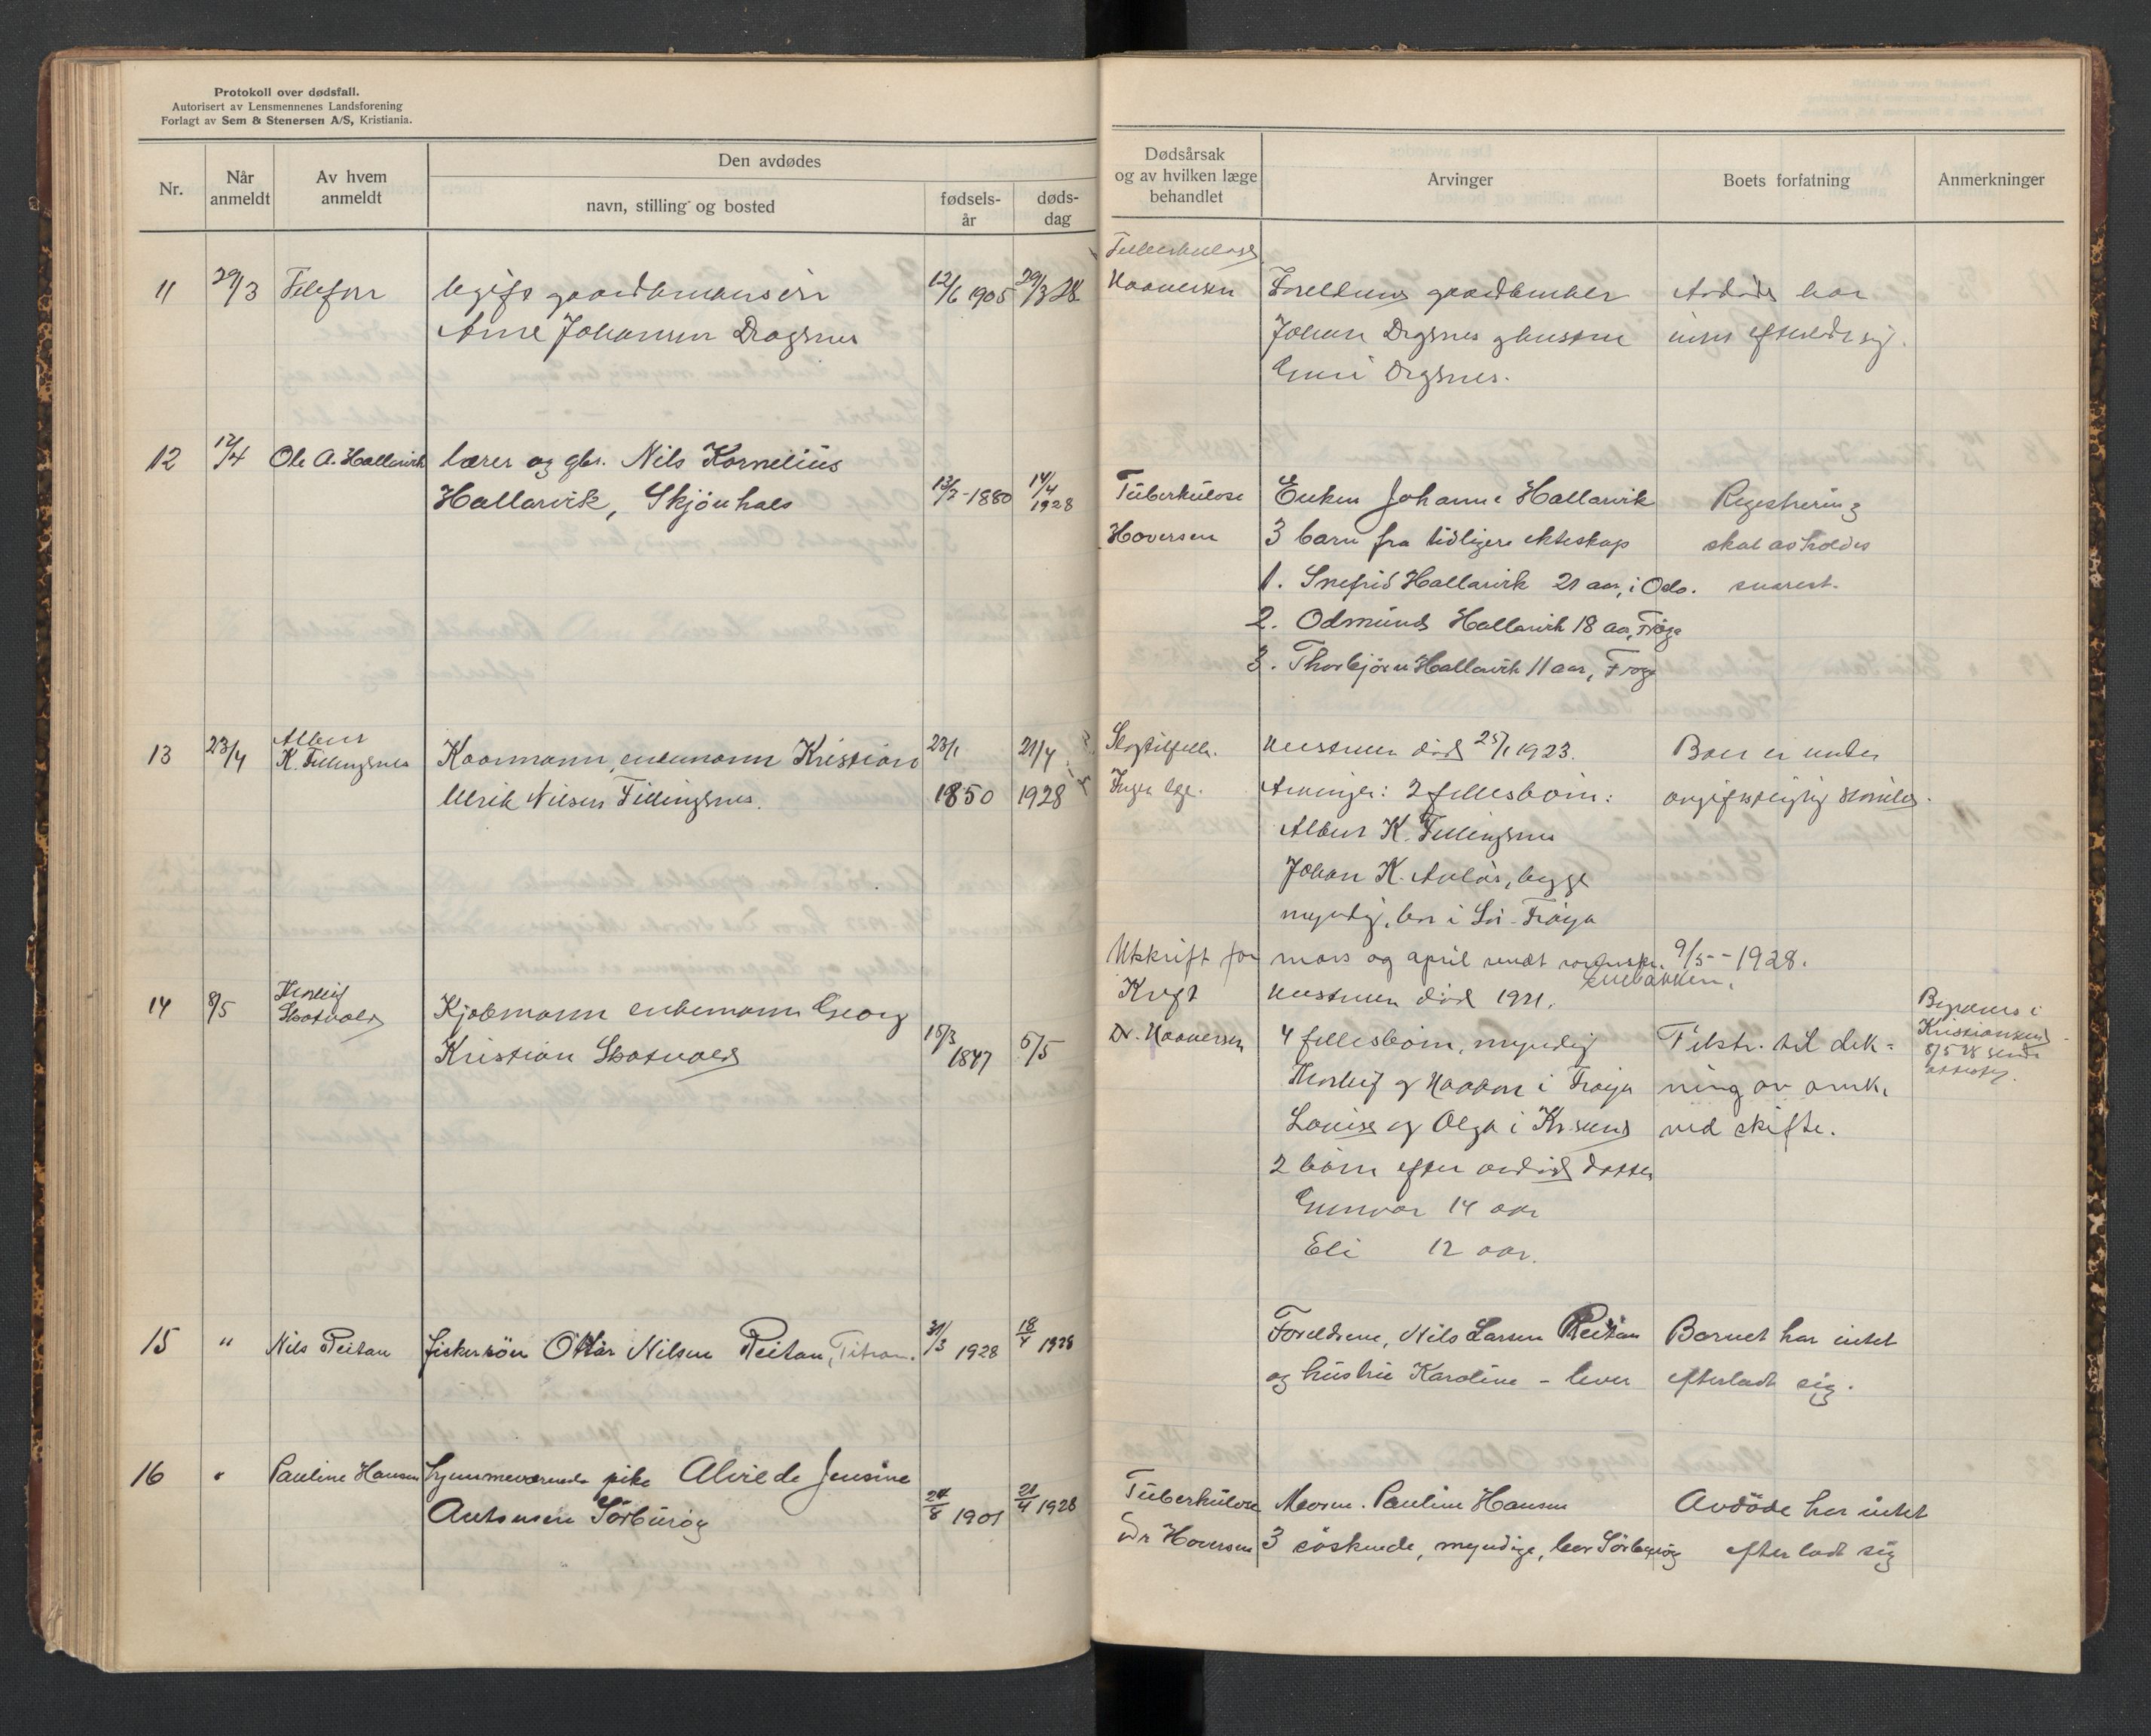 Protokoll over dødsfall.
Autorisert av Lensmennenes Landsforening
Forlagt av Sem & Stenersen A/S, Kristiania.
Nr.
Når anmeldt
Av hvem anmeldt
Den avdødes
navn, stilling og bosted
fødselsår
dødsdag
Dødsårsak og av hvilken læge behandlet
Arvinger
Boets forfatning
Anmerkninger
11 29/3 Telefon
ugift gaardbrukersøn
Arne Johansen Dragsnes
12/6 1905 29/3 28
Tuberkulose
Haaversen
Foreldrene gaardbruker
Johan Dragsnes og hustru
Dragsnes.
Avdøde har
intet efterladt sig.
12 12/4 Ole A. Hallarvik
lærer og gbr. Nils Kornelius
Hallarvik, Skjönhals
13/2-1880 14/4 1928
Tüberkülose
Hoversen
Enken Johanne Hallarvik
3 barn fra tidligere ekteskap
1. Snefrid Hallarvik 21 aar, i Oslo.
2. Odmünd Hallarvik 18 aar, Fröya
3. Thorbjörn Hallarvik 11 aar, Fröya
Registrering
skal avholdes
snarest.
13 23/4 Albert
K. Fillingsnes
Kaarmann, enkemann Kristian
Ulrik Nilsen Fillingsnes.
23/1
1850
21/4
1928
Slagtilfelle.
Ingen læge.
Hustruen död 25/1 1923.
Arvinger: 2 fellesbörn:
Albert K. Fillingsnes
Johan K. begge
myndig, bor i Sör-Fröya
Boet er under
avgiftspligtig störrelse.
Utskrift for mars og april sendt 9/5-1928.
14 8/5 Thorleif
Skotvold
Kjöbmann enkemann Georg
Kristian Skotvold
15/3
1847
5/5
Kreft
Dr. Haaversen
Hustruen död 1921.
4 fellesbörn, myndig
Thorleif og Haakon i Fröya
Louise og Olga i Kr.sund
2 börn efter avdöd datter
Gunvor 14 aar
Eli 12 aar.
Tilstr. til dekning
av omk.
ved skifte.
Begraves i
Kristiansund
8/5 28 sendt
15 " Nils Reitan
fiskersön Ottar Nilsen Reitan, Titran.
31/3 1928 18/4 1928
Foreldrene, Nils Larsen Reitan
og hüstrü Karoline - lever
Barnet har intet
efterladt sig.
16 " Pauline Hansen
hjemmeværende pike Alvilde Jensine
Antonsen Sörbüröy
24/8 1901 21/4 1928
Tüberkülose
Dr Hoversen
Moren. Pauline Hansen
3 söskende, myndige, bor Sörbüröy
Avdöde har intet
efterladt sig